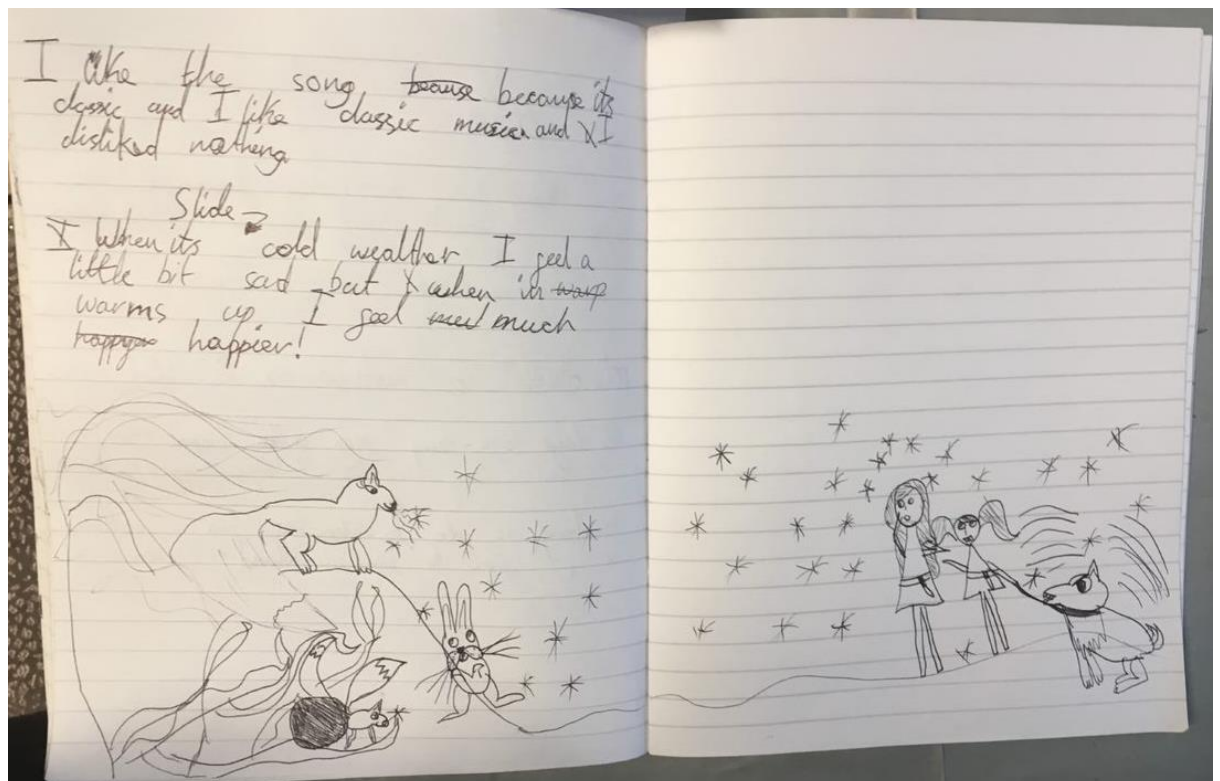 I like the song because because its
classic and I like classic music and I
disliked nothing
Slide 2
I When its cold wealther I feel a
little bit sad but when in warp
warms up I feel much
happier!